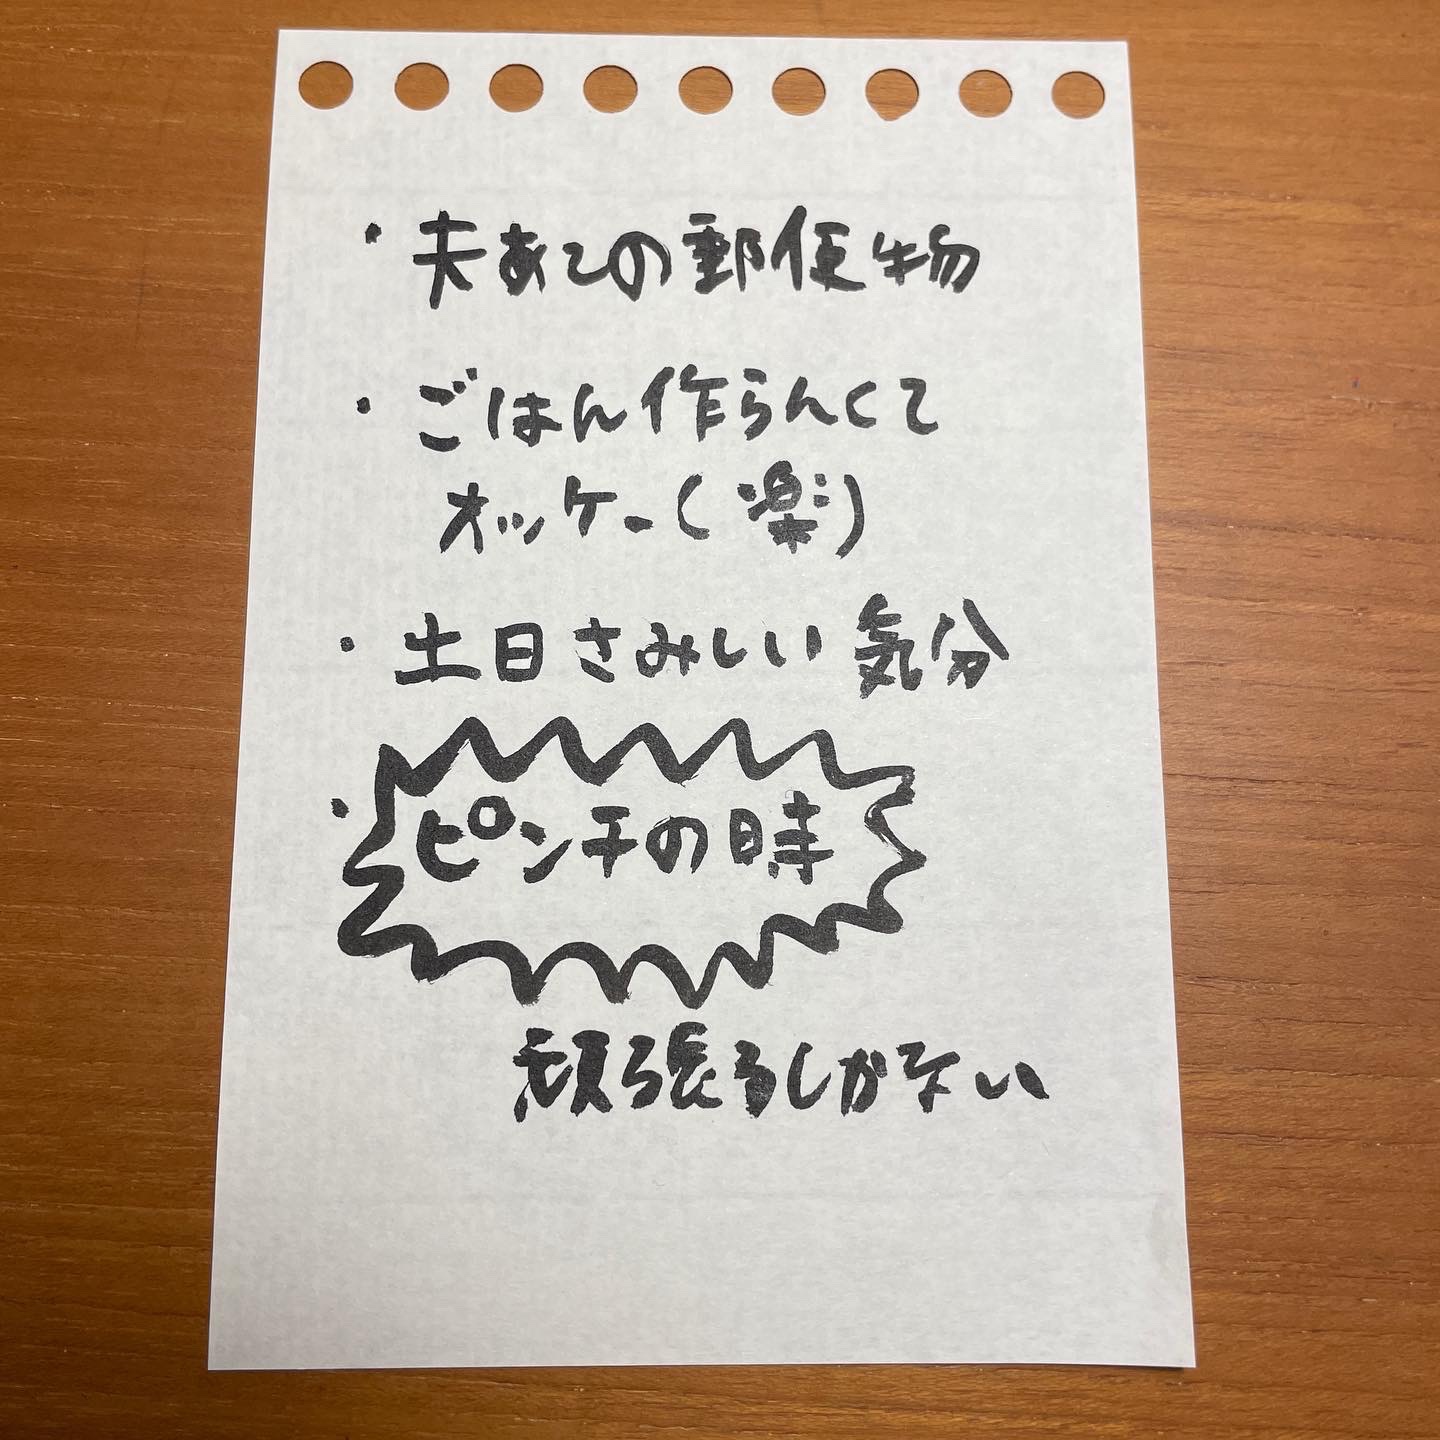 ・夫あての郵便物
・ごはん作らんくて
オッケー(楽)
・土日さみしい気分
・ピンチの時
頑張るしかない